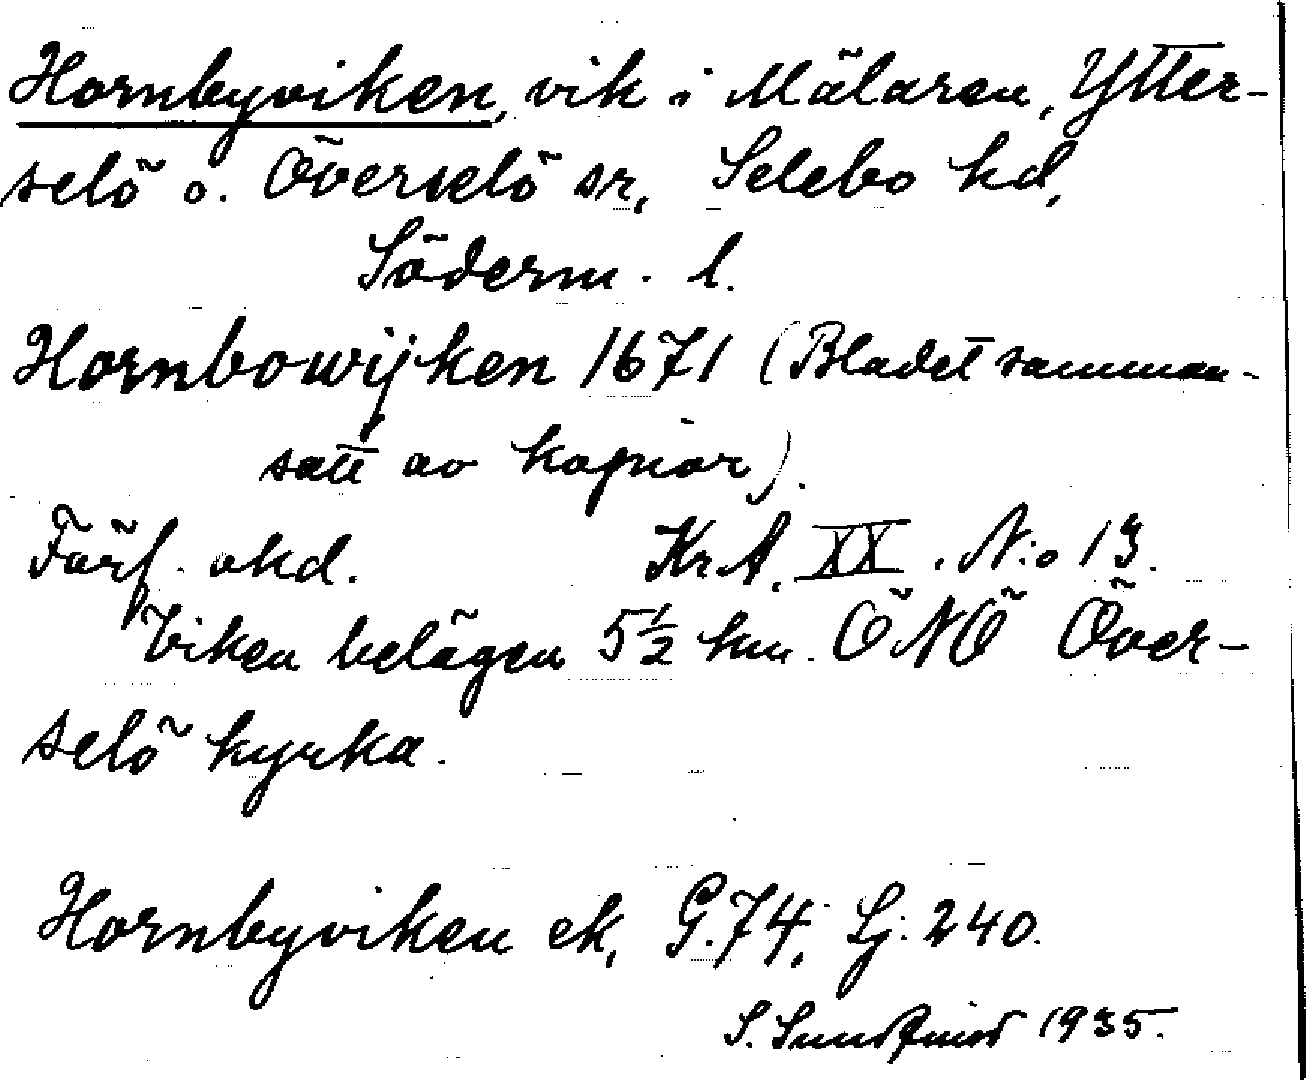 Hornbyviken, vik i Mälaren, Ytter-
selö o. Överselö sr, Selebo hd,
Söderm. l.
Hornbowijken 1671 (Bladet samman-
satt av kopior).
Förf. okd. KrA. XX. N:o 13.
Viken belägen 5½ km. ÖNÖ Över-
selö kyrka.
Hornbyviken ek, G.74; Lj: 240.
S. Sundquist 1935.